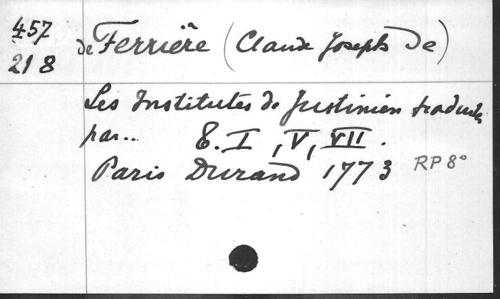 457
218
de Ferrière (Claude Joseph de)
Les Institutes de Justinien traduites
par... T. I, V, VII.
Paris Durand 1773 RP 8°